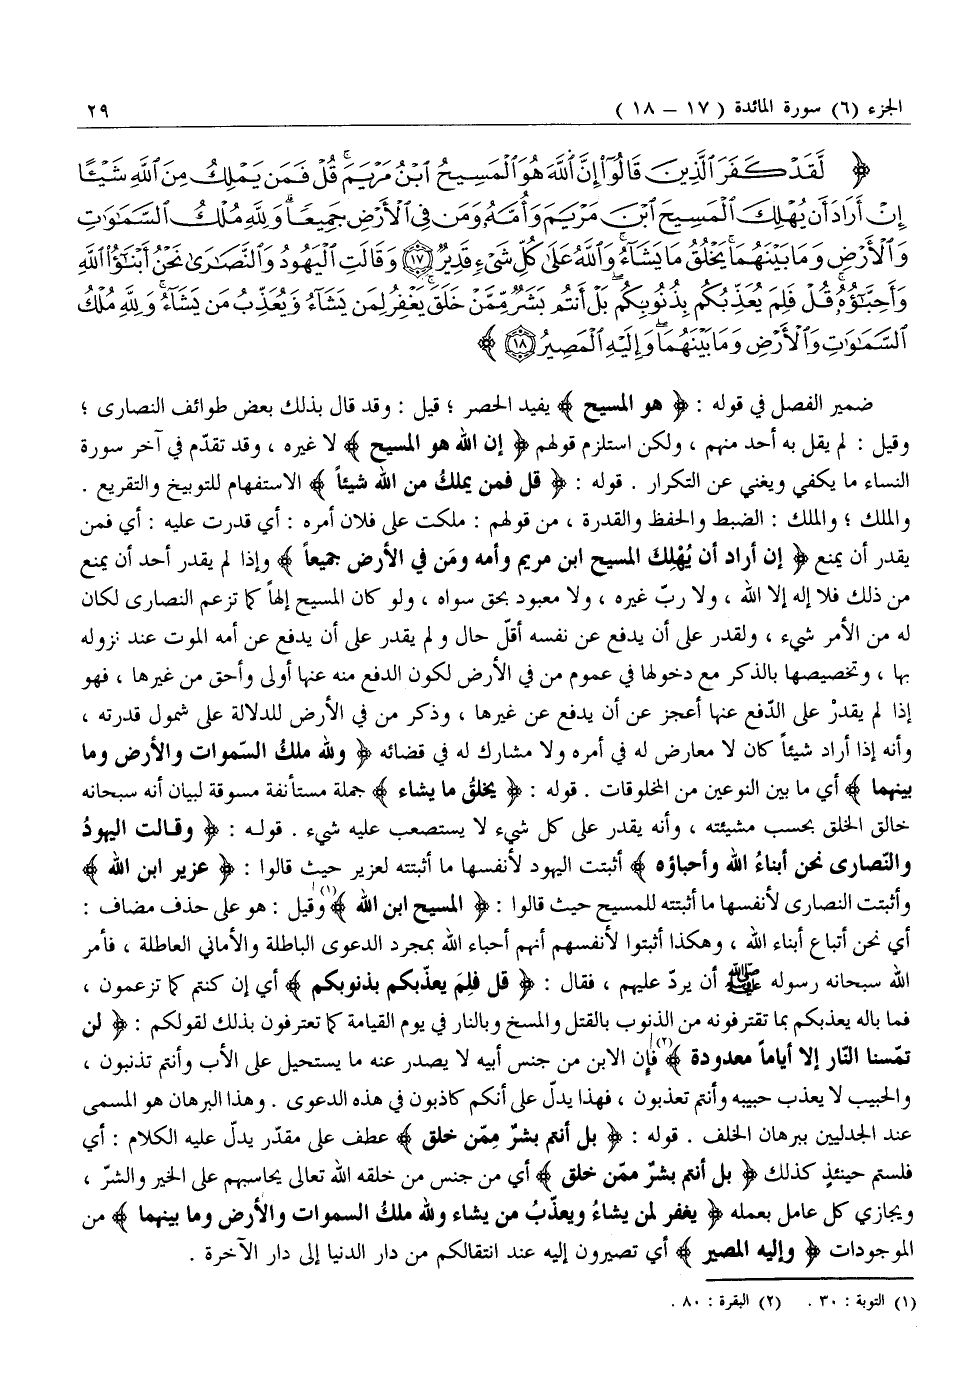 الجزء (٦) سورة المائدة ( ١٧ – ١٨ ) ٢٩
﴿ لَّقَدْ كَفَرَ الَّذِينَ قَالُوٓا۟ إِنَّ اللَّهَ هُوَ الْمَسِيحُ ابْنُ مَرْيَمَ ۚ قُلْ فَمَن يَمْلِكُ مِنَ اللَّهِ شَيْـًٔا
إِنْ أَرَادَ أَن يُهْلِكَ الْمَسِيحَ ابْنَ مَرْيَمَ وَأُمَّهُۥ وَمَن فِى الْأَرْضِ جَمِيعًا ۗ وَلِلَّهِ مُلْكُ السَّمَٰوَٰتِ
وَالْأَرْضِ وَمَا بَيْنَهُمَا ۚ يَخْلُقُ مَا يَشَآءُ ۚ وَاللَّهُ عَلَىٰ كُلِّ شَىْءٍ قَدِيرٌ ۝١٧ وَقَالَتِ الْيَهُودُ وَالنَّصَٰرَىٰ نَحْنُ أَبْنَٰٓؤُا۟ اللَّهِ
وَأَحِبَّٰٓؤُهُۥ ۚ قُلْ فَلِمَ يُعَذِّبُكُم بِذُنُوبِكُم ۖ بَلْ أَنتُم بَشَرٌ مِّمَّنْ خَلَقَ ۚ يَغْفِرُ لِمَن يَشَآءُ وَيُعَذِّبُ مَن يَشَآءُ ۚ وَلِلَّهِ مُلْكُ
السَّمَٰوَٰتِ وَالْأَرْضِ وَمَا بَيْنَهُمَا ۖ وَإِلَيْهِ الْمَصِيرُ ۝١٨ ﴾
ضمير الفصل في قوله : ﴿ هو المسيح ﴾ يفيد الحصر ؛ قيل : وقد قال بذلك بعض طوائف النصارى ؛
وقيل : لم يقل به أحد منهم ، ولكن استلزم قولهم ﴿ إن الله هو المسيح ﴾ لا غيره ، وقد تقدّم في آخر سورة
النساء ما يكفي ويغني عن التكرار . قوله : ﴿ قل فمن يملك من الله شيئاً ﴾ الاستفهام للتوبيخ والتقريع .
والملك ؛ والملك : الضبط والحفظ والقدرة ، من قولهم : ملكت على فلان أمره : أي قدرت عليه : أي فمن
يقدر أن يمنع ﴿ إن أراد أن يُهْلِكَ المسيح ابن مريم وأمه ومَن في الأرض جميعاً ﴾ وإذا لم يقدر أحد أن يمنع
من ذلك فلا إله إلا الله ، ولا ربّ غيره ، ولا معبود بحق سواه ، ولو كان المسيح إلهاً كما تزعم النصارى لكان
له من الأمر شيء ، ولقدر على أن يدفع عن نفسه أقلّ حال ولم يقدر على أن يدفع عن أمه الموت عند نزوله
بها ، وتخصيصها بالذكر مع دخولها في عموم من في الأرض لكون الدفع منه عنها أولى وأحق من غيرها ، فهو
إذا لم يقدرْ على الدّفع عنها أعجز عن أن يدفع عن غيرها ، وذكر من في الأرض للدلالة على شمول قدرته ،
وأنه إذا أراد شيئاً كان لا معارض له في أمره ولا مشارك له في قضائه ﴿ ولله ملكُ السّموات والأرض وما
بينهما ﴾ أي ما بين النوعين من المخلوقات . قوله : ﴿ يخلقُ ما يشاء ﴾ جملة مستأنفة مسوقة لبيان أنه سبحانه
خالق الخلق بحسب مشيئته ، وأنه يقدر على كل شيء لا يستصعب عليه شيء . قوله : ﴿ وقالت اليهودُ
والنّصارى نحن أبناءُ الله وأحباؤه ﴾ أثبتت اليهود لأنفسها ما أثبتته لعزير حيث قالوا : ﴿ عزير ابن الله ﴾
وأثبتت النصارى لأنفسها ما أثبتته للمسيح حيث قالوا : ﴿ المسيح ابن الله ﴾(١) وقيل : هو على حذف مضاف :
أي نحن أتباع أبناء الله ، وهكذا أثبتوا لأنفسهم أنهم أحباء الله بمجرد الدعوى الباطلة والأماني العاطلة ، فأمر
الله سبحانه رسوله ﷺ أن يردّ عليهم ، فقال : ﴿ قل فلِمَ يعذّبكم بذنوبكم ﴾ أي إن كنتم كما تزعمون ،
فما باله يعذبكم بما تقترفونه من الذنوب بالقتل والمسخ وبالنار في يوم القيامة كما تعترفون بذلك لقولكم : ﴿ لن
تمّسنا النّار إلا أياماً معدودة ﴾(٢) فإن الابن من جنس أبيه لا يصدر عنه ما يستحيل على الأب وأنتم تذنبون ،
والحبيب لا يعذب حبيبه وأنتم تعذبون ، فهذا يدلّ على أنكم كاذبون في هذه الدعوى . وهذا البرهان هو المسمى
عند الجدليين ببرهان الخلف . قوله : ﴿ بل أنتم بشرٌ مِمّن خلق ﴾ عطف على مقدّر يدلّ عليه الكلام : أي
فلستم حينئذٍ كذلك ﴿ بل أنتم بشرٌ ممّن خلق ﴾ أي من جنس من خلقه الله تعالى يحاسبهم على الخير والشرّ ،
ويجازي كل عامل بعمله ﴿ يغفر لمن يشاءُ ويعذّبُ من يشاء ولله ملكُ السموات والأرض وما بينهما ﴾ من
الموجودات ﴿ وإليه المصير ﴾ أي تصيرون إليه عند انتقالكم من دار الدنيا إلى دار الآخرة .
(١) التوبة : ٣٠ . (٢) البقرة : ٨٠ .